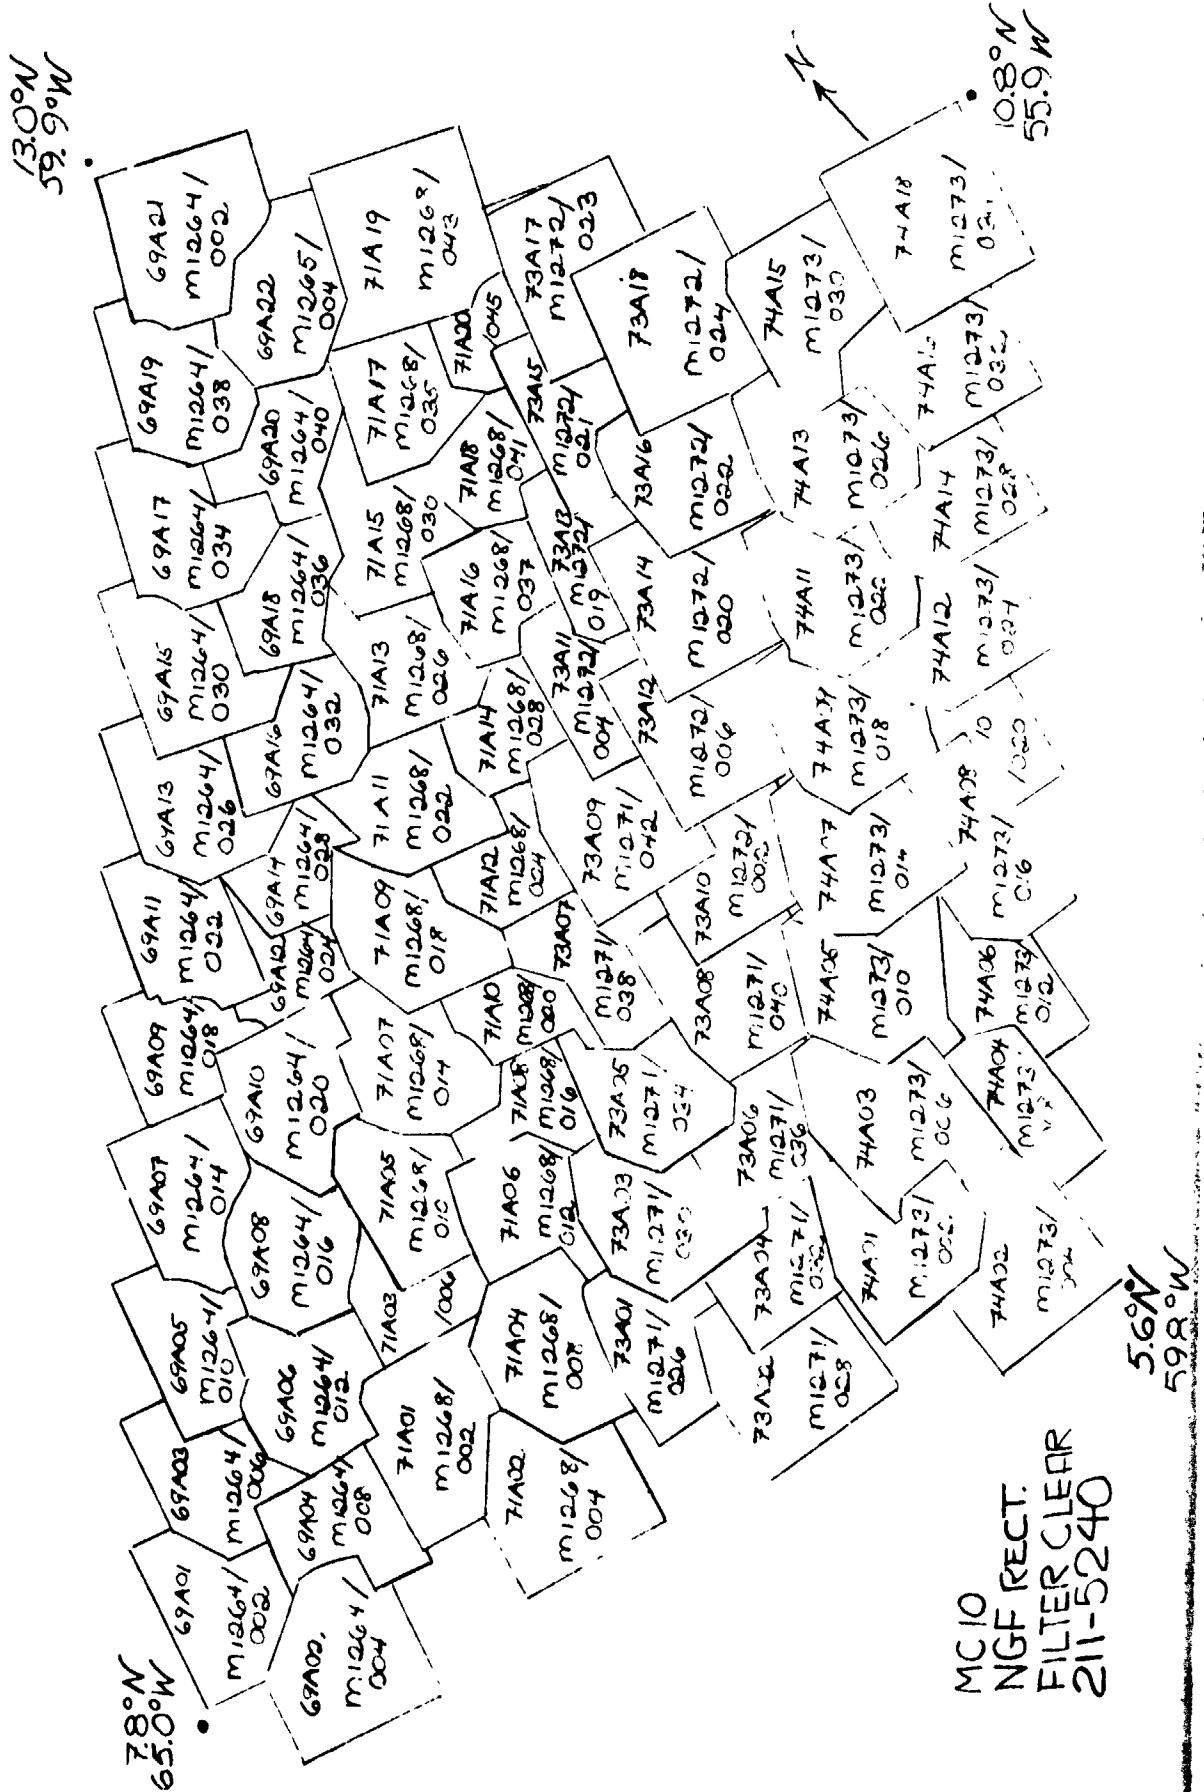 13.0°N
59.9°W
10.8°N
55.9 W
7.8°N
65.0°W
5.6°N
59.8°W
N
69A01
M1264/
002
69A02
M1264/
004
69A03
M1264/
006
69A04
M1264/
008
69A05
M1264/
010
69A06
M1264/
012
69A07
M1264/
014
69A08
M1264/
016
69A09
M1264/
018
69A10
M1264/
020
69A11
M1264/
022
69A12
M1264/
024
69A13
M1264/
026
69A14
M1264/
028
69A15
M1264/
030
69A16
M1264/
032
69A17
M1264/
034
69A18
M1264/
036
69A19
M1264/
038
69A20
M1264/
040
69A21
M1264/
002
69A22
M1265/
004
71A01
M1268/
002
71A02
M1268/
004
71A03
/006
71A04
M1268/
008
71A05
M1268/
010
71A06
M1268/
012
71A07
M1268/
014
71A08
M1268/
016
71A09
M1268/
018
71A10
M1268/
020
71A11
M1268/
022
71A12
M1268/
024
71A13
M1268/
026
71A14
M1268/
028
71A15
M1268/
030
71A16
M1268/
037
71A17
M1268/
035
71A18
M1268/
041
71A19
M1268/
043
71A20
/045
73A01
M1271/
026
M1271/
028
73A03
M1271/
030
73A04
M1271/
73A05
M1271/
034
73A06
M1271/
036
73A07
M1271/
038
73A08
M1271/
040
73A09
M1271/
042
73A10
M1272/
002
73A11
M1272/
004
73A12
M1272/
006
73A13
M1272/
019
73A14
M1272/
020
73A15
M1272/
021
73A16
M1272/
022
73A17
M1272/
023
73A18
M1272/
024
74A01
M1273/
002
74A02
M1273/
74A03
M1273/
006
74A04
M1273
74A05
M1273/
010
74A06
M1273/
012
74A07
M1273/
014
74A08
M1273/
016
M1273/
018
10
/020
74A11
M1273/
022
74A12
M1273/
024
74A13
M1273/
026
74A14
M1273/
028
74A15
M1273/
030
M1273/
032
74A18
M1273/
MC10
NGF RECT.
FILTER CLEAR
211-5240